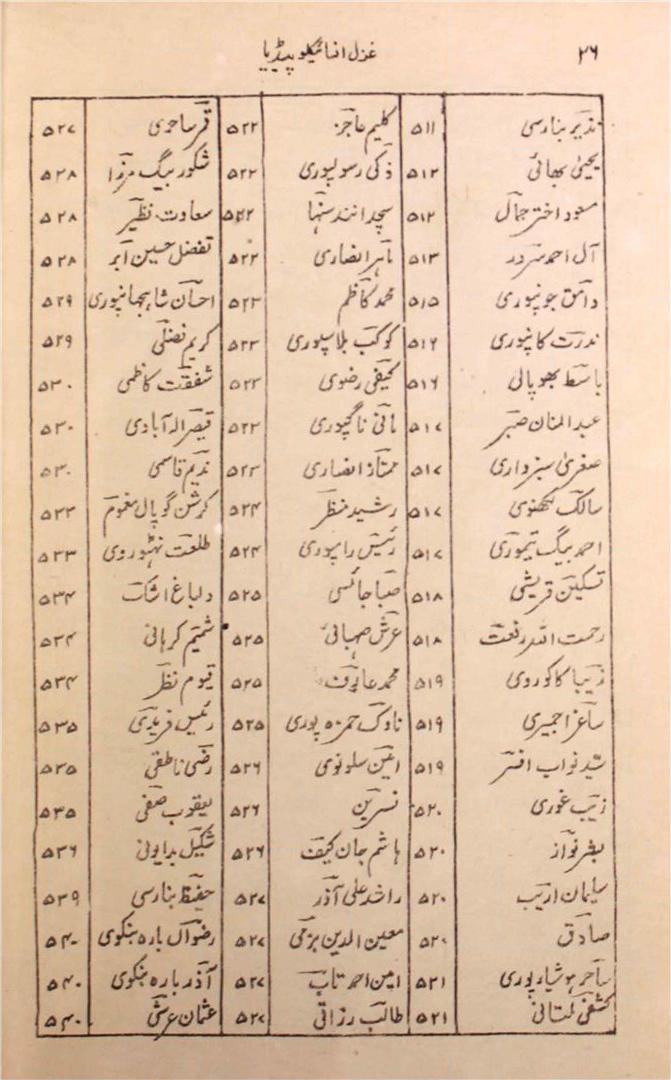 ۲۶ غزل انسائیکلوپیڈیا
نذیر بنارسی ۵۱۱ کلیم عاجز ۵۲۲ قمر ساحری ۵۲۷
یحییٰ بھائی ۵۱۲ ذکی رسولپوری ۵۲۲ شکور بیگ مرزا ۵۲۸
مسعود اختر جمال ۵۱۲ سچدانند سنہا ۵۲۲ سعادت نظیر ۵۲۸
آل احمد سرور ۵۱۳ ماہر انصاری ۵۲۲ تفضل حسین ابر ۵۲۸
دامق جونپوری ۵۱۵ محمد کاظم ۵۲۳ احسان شاہجہانپوری ۵۲۹
ندرت کانپوری ۵۱۶ کوکب بلاسپوری ۵۲۳ کریم فضلی ۵۲۹
باسط بھوپالی ۵۱۶ کیفی رضوی ۵۲۳ شفقت کاظمی ۵۳۰
عبدالمنان صبر ۵۱۷ مانی ناگپوری ۵۲۳ قیصر الہ آبادی ۵۳۰
صغریٰ سبزواری ۵۱۷ ممتاز انصاری ۵۲۳ ندیم قاسمی ۵۳۰
سالک لکھنوی ۵۱۷ رشید منظر ۵۲۴ کرشن گوپال مغموم ۵۳۳
احمد بیگ تیموری ۵۱۷ رئیس رامپوری ۵۲۴ طلعت نہٹوروی ۵۳۳
تسکین قریشی ۵۱۸ صبا جائسی ۵۲۵ دلباغ اشک ۵۳۴
رحمت اللہ رفعت ۵۱۸ عرش صہبائی ۵۲۵ شمیم کرہانی ۵۳۴
زیبا کاکوروی ۵۱۹ محمد عارف ۵۲۵ قیوم نظر ۵۳۴
ساغر اجمیری ۵۱۹ ناوک حمزہ پوری ۵۲۵ رئیس فریدی ۵۳۵
سید نواب افسر ۵۱۹ امین سلونوی ۵۲۶ رضی ناطقی ۵۳۵
زیب غوری ۵۲۰ نسرین ۵۲۶ یعقوب صفی ۵۳۵
بشر نواز ۵۲۰ ہاشم جان کیف ۵۲۶ شکیل بدایونی ۵۳۶
سلیمان اریب ۵۲۰ راشد علی آذر ۵۲۷ حفیظ بنارسی ۵۳۹
صادق ۵۲۰ معین الدین بزمی ۵۲۷ رضواں بارہ بنکوی ۵۴۰
ساحر ہوشیارپوری ۵۲۱ امین احمد تاب ۵۲۷ آذر بارہ بنکوی ۵۴۰
کشفی ملتانی ۵۲۱ طالب رزاقی ۵۲۷ عثمان عرشی ۵۴۰